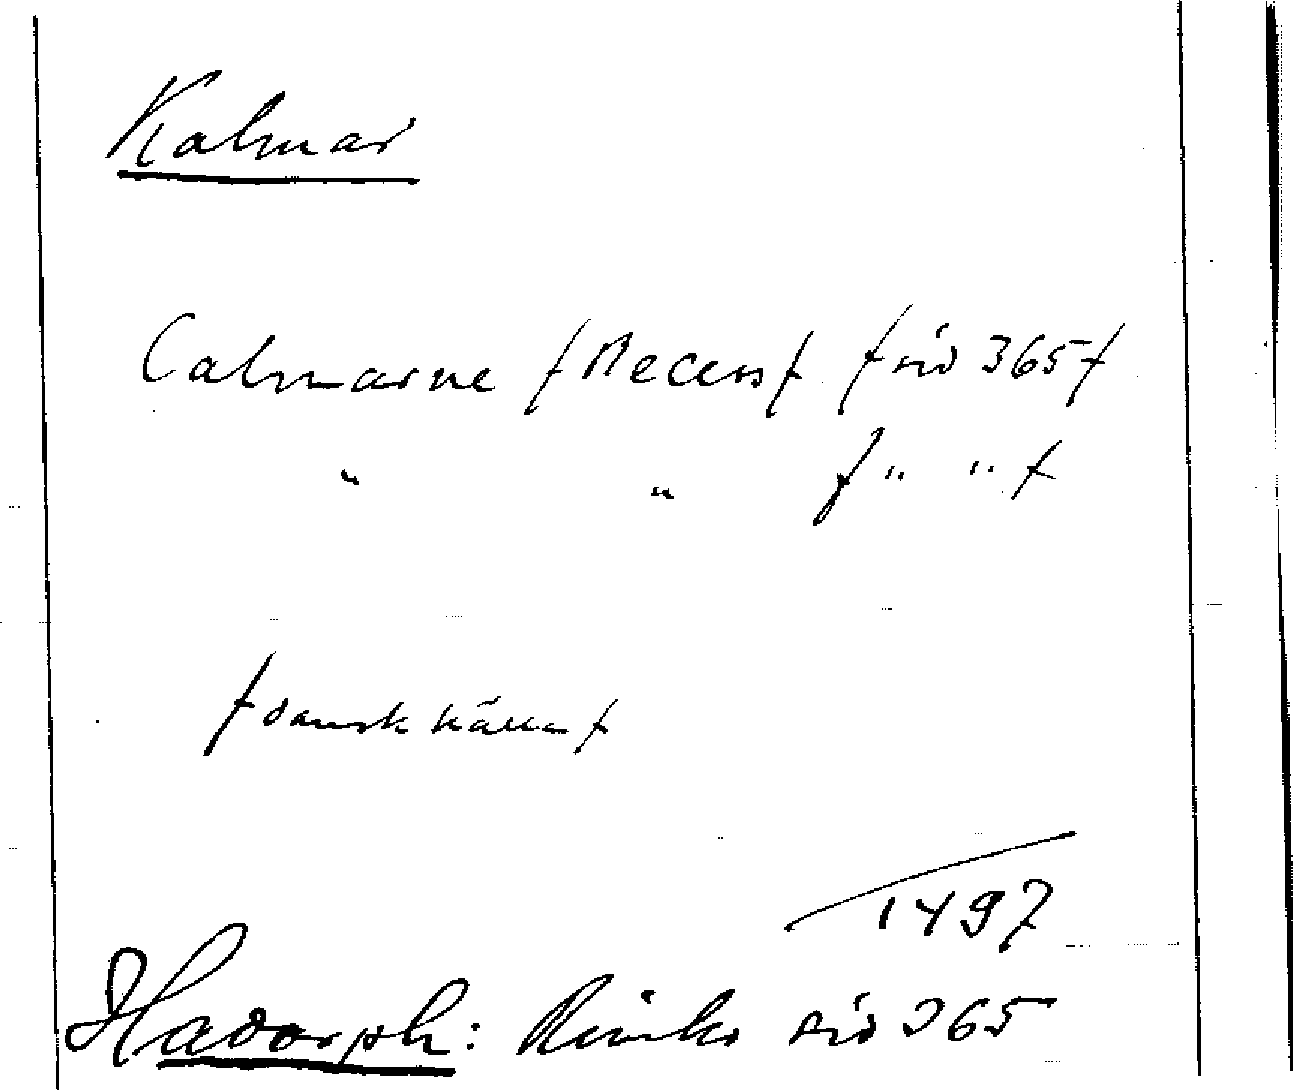 Kalmar
Calmarne /Recess/ /sid 365/
" " /" "/
/dansk källa/
1497
Hadorph: Rimkr sid 365